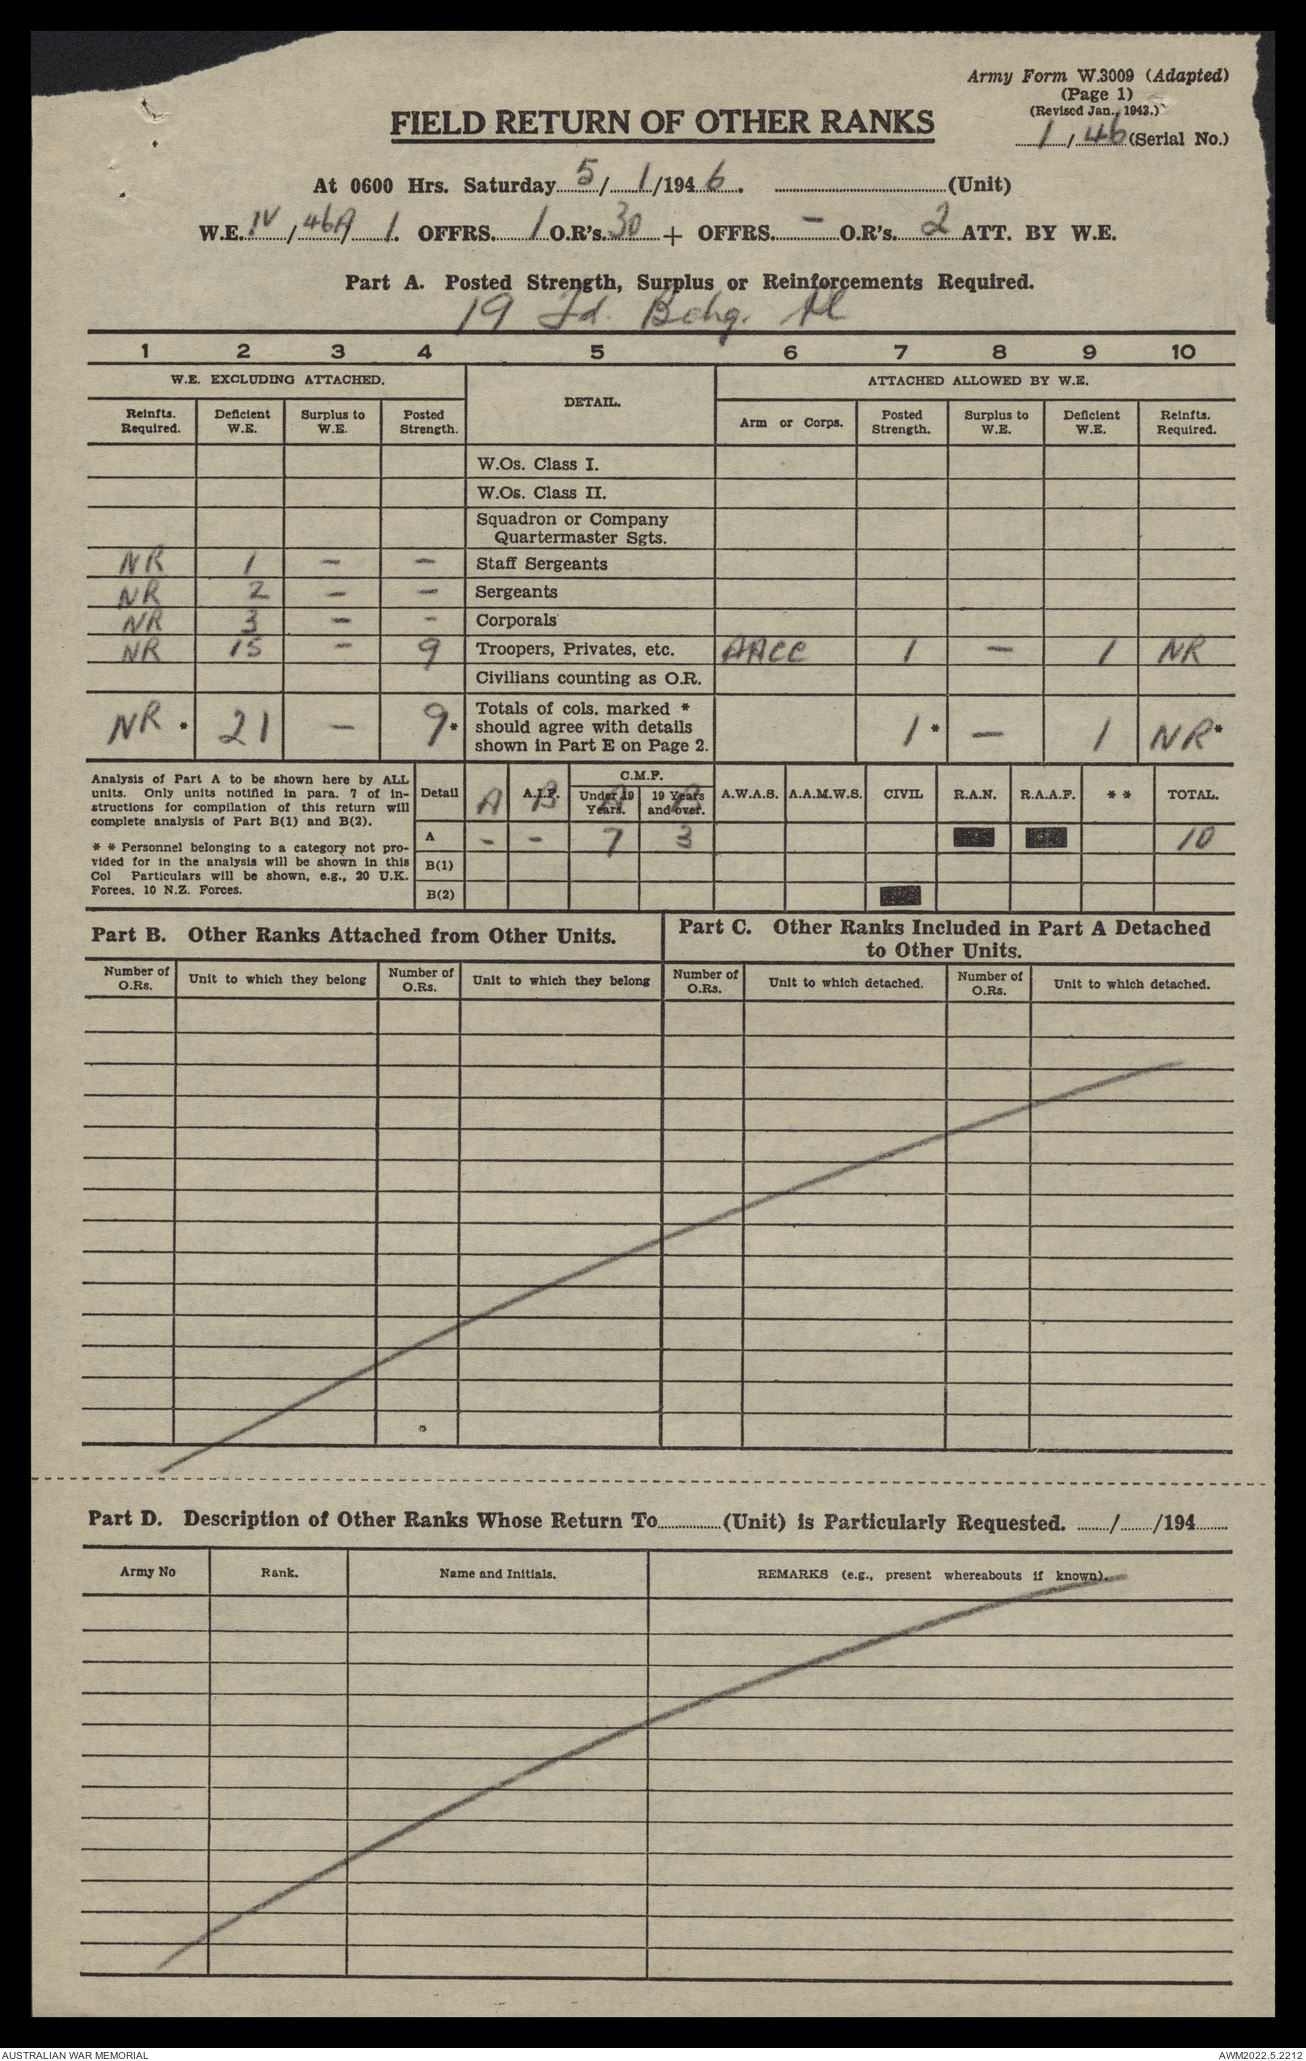 Army Form W.3009 (Adapted)
(Page 1)
(Revised Jan., 1943.)
1/46 (Serial No.)
FIELD RETURN OF OTHER RANKS
At 0600 Hrs. Saturday 5/1/1946. (Unit)
W.E. IV/46A/1. OFFRS. 1 O.R's. 30 + OFFRS. – O.R's. 2 ATT. BY W.E.
Part A. Posted Strength, Surplus or Reinforcements Required.
19 Fd. Bchg. Pl
1 2 3 4 5 6 7 8 9 10
W.E. EXCLUDING ATTACHED. DETAIL. ATTACHED ALLOWED BY W.E.
Reinfts. Required. Deficient W.E. Surplus to W.E. Posted Strength. Arm or Corps. Posted Strength. Surplus to W.E. Deficient W.E. Reinfts. Required.
W.Os. Class I.
W.Os. Class II.
Squadron or Company
Quartermaster Sgts.
NR 1 – – Staff Sergeants
NR 2 – – Sergeants
NR 3 – – Corporals
NR 15 – 9 Troopers, Privates, etc. AACC 1 – 1 NR
Civilians counting as O.R.
Totals of cols. marked *
should agree with details
shown in Part E on Page 2.
NR * 21 – 9 * 1 * – 1 NR *
Analysis of Part A to be shown here by ALL
units. Only units notified in para. 7 of in-
structions for compilation of this return will
complete analysis of Part B(1) and B(2).
* * Personnel belonging to a category not pro-
vided for in the analysis will be shown in this
Col Particulars will be shown, e.g., 20 U.K.
Forces, 10 N.Z. Forces.
Detail A.I.F. C.M.F. A.W.A.S. A.A.M.W.S. CIVIL R.A.N. R.A.A.F. * * TOTAL.
Under 19 Years. 19 Years and over.
A B A B
A – – 7 3 10
B(1)
B(2)
Part B. Other Ranks Attached from Other Units.
Part C. Other Ranks Included in Part A Detached
to Other Units.
Number of O.Rs. Unit to which they belong Number of O.Rs. Unit to which they belong Number of O.Rs. Unit to which detached. Number of O.Rs. Unit to which detached.
Part D. Description of Other Ranks Whose Return To (Unit) is Particularly Requested. / /194
Army No Rank. Name and Initials. REMARKS (e.g., present whereabouts if known).
AUSTRALIAN WAR MEMORIAL
AWM2022.5.2212